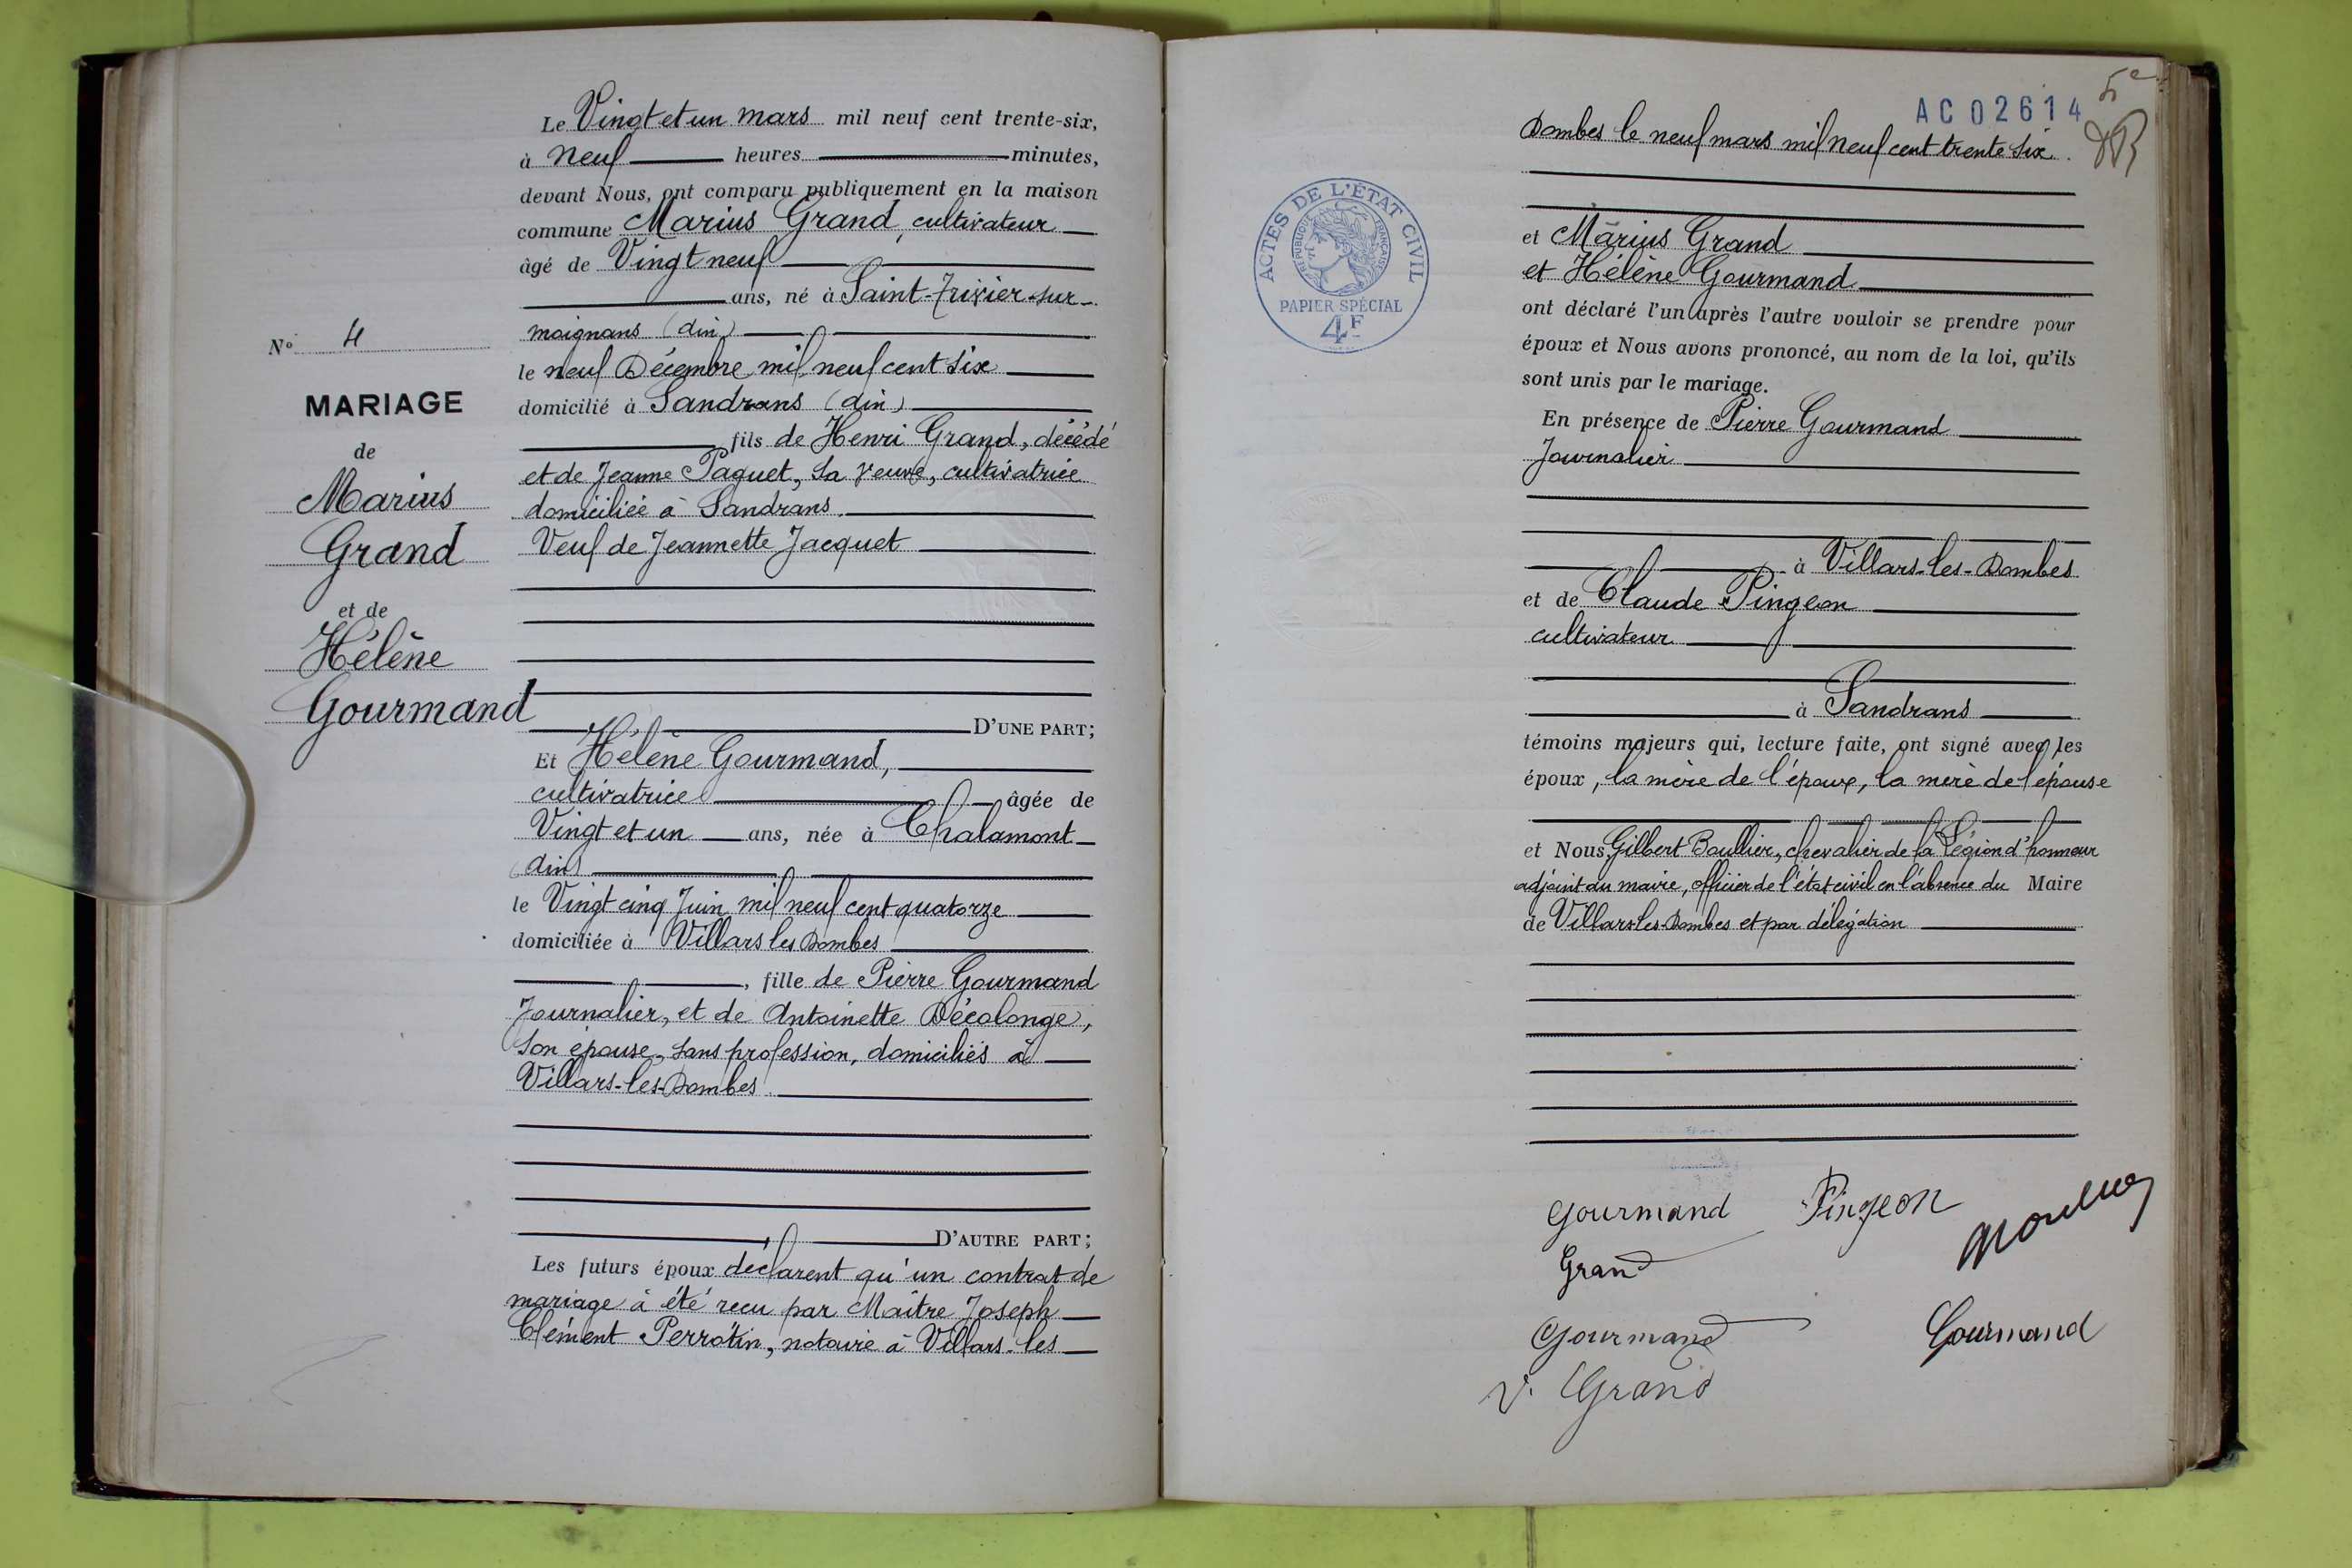 Le Vingt et un mars mil neuf cent trente-six,
à neuf heures minutes,
devant Nous, ont comparu publiquement en la maison
commune Marius Grand, cultivateur
âgé de Vingt neuf
ans, né à Saint-Trivier-sur-
moignans (ain)
le neuf Décembre mil neuf cent six
domicilié à Sandrans (ain)
fils de Henri Grand, décédé
et de Jeanne Paquet, sa veuve, cultivatrice
domiciliée à Sandrans.
Veuf de Jeannette Jacquet
D'UNE PART;
N° 4
MARIAGE
de
Marius
Grand
et de
Hélène
Gourmand
Et Hélène Gourmand,
cultivatrice âgée de
Vingt et un ans, née à Chalamont
(ain)
le Vingt cinq Juin mil neuf cent quatorze
domiciliée à Villars les Dombes
, fille de Pierre Gourmand
Journalier, et de Antoinette Décolonge,
son épouse, sans profession, domiciliés à
Villars-les-Dombes
D'AUTRE PART;
Les futurs époux déclarent qu'un contrat de
mariage à été reçu par Maître Joseph
Clément Perrotin, notaire à Villars-les
AC02614
5e
Dombes le neuf mars mil neuf cent trente six.
ACTES DE L'ÉTAT CIVIL
RÉPUBLIQUE FRANÇAISE
PAPIER SPÉCIAL
4F
et Marius Grand
et Hélène Gourmand
ont déclaré l'un après l'autre vouloir se prendre pour
époux et Nous avons prononcé, au nom de la loi, qu'ils
sont unis par le mariage.
En présence de Pierre Gourmand
Journalier
à Villars-les-Dombes
et de Claude Pingeon
cultivateur
à Sandrans
témoins majeurs qui, lecture faite, ont signé avec les
époux, la mère de l'époux, la mère de l'épouse
et Nous, Gilbert Boullier, chevalier de la Légion d'honneur
adjoint au maire, officier de l'état civil en l'absence du Maire
de Villars-les-Dombes et par délégation
Gourmand Pingeon
Grand
Gourmand Gourmand
V. Grand